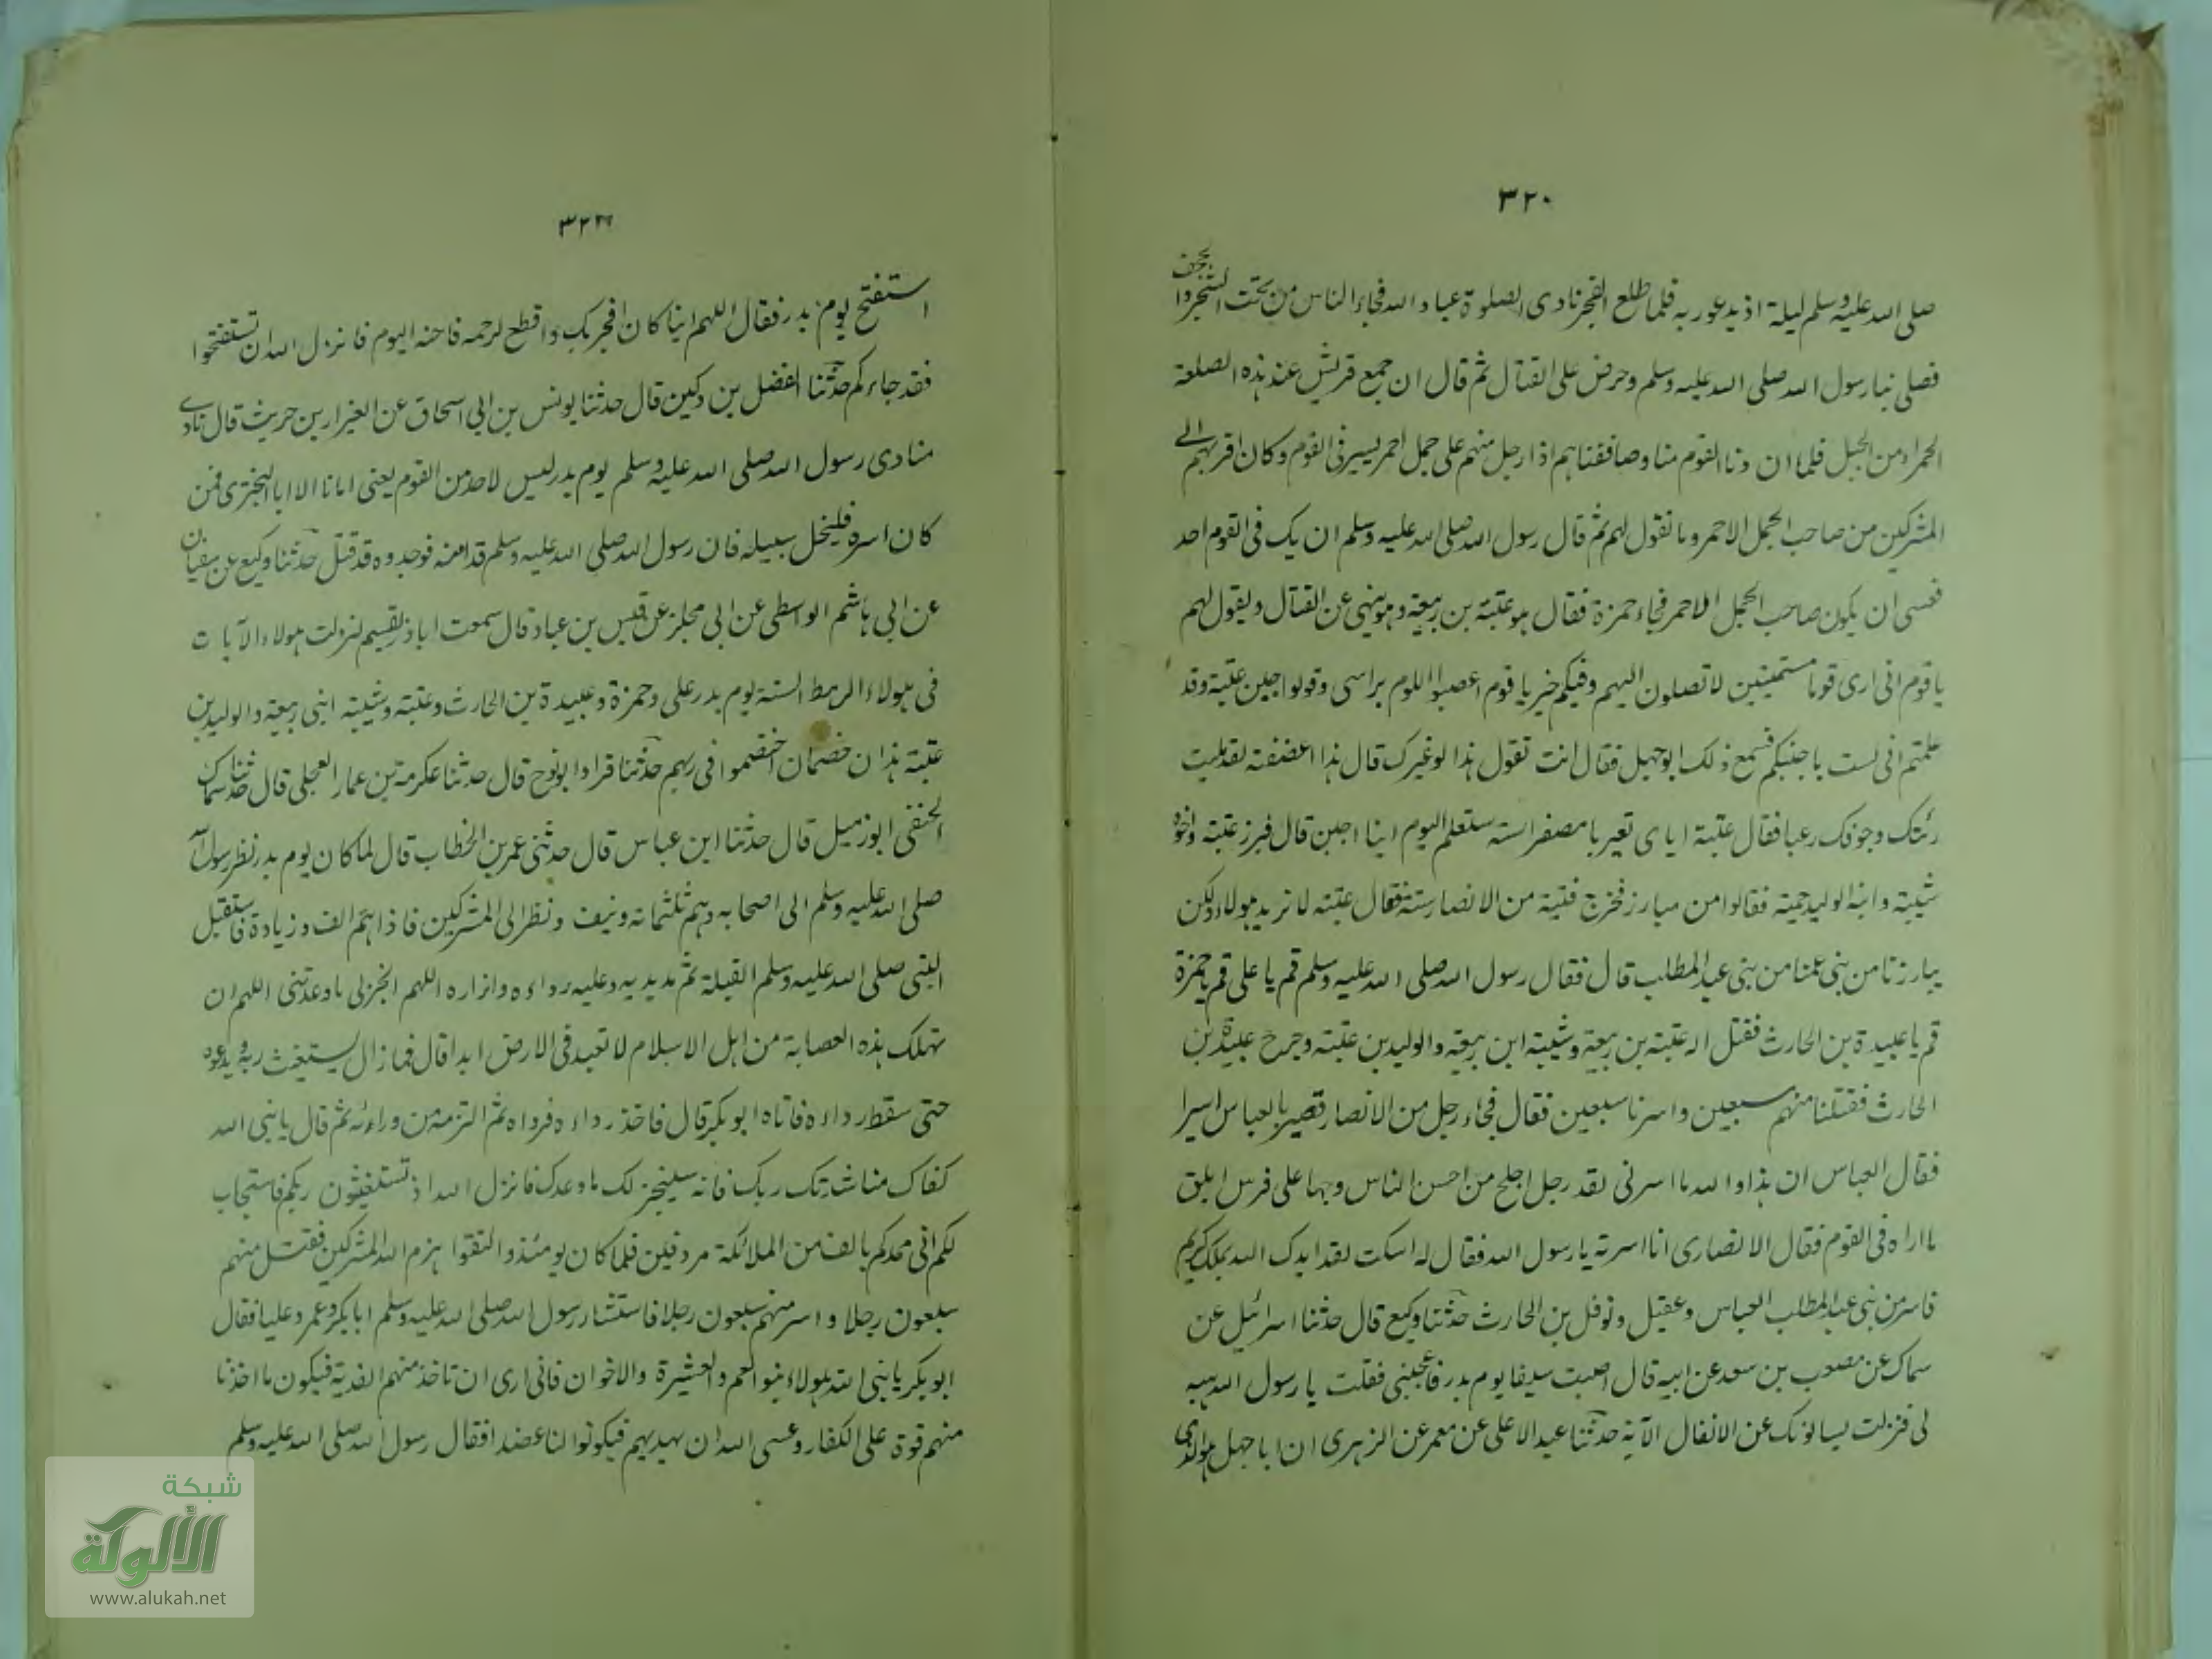 ٣٢٠
صلى الله عليه وسلم ليلة اذ يدعو ربه فلما طلع الفجر نادى الصلوة عباد الله فجاء الناس من تحت الشجر وا
لحجف
فصلى بنا رسول الله صلى الله عليه وسلم وحرض على القتال ثم قال ان جمع قريش عند هذه الصلعة
الحمراء من الجبل فلما ان دنا القوم منا وصاففناهم اذا رجل منهم على جمل احمر يسير فى القوم وكان اقربهم الى
المشركين من صاحب الجمل الاحمر وما نقول لهم ثم قال رسول الله صلى الله عليه وسلم ان يك فى القوم احد
فعسى ان يكون صاحب الجمل الاحمر فجاء حمزة فقال هو عتبة بن ربيعة وهو ينهى عن القتال ويقول لهم
يا قوم انى ارى قوما مستميتين لا تصلون اليهم وفيكم خير يا قوم اعصبوا اللوم براسى وقولوا جبن عتبة وقد
علمتم انى لست باجبنكم فسمع ذلك ابو جهل فقال انت تقول هذا لو غيرك قال هذا اعضضته لقد مليت
رئتك وجوفك رعبا فقال عتبة اياى تعير يا مصفر استه ستعلم اليوم اينا اجبن قال فبرز عتبة واخوه
شيبة وابنه الوليد حمية فقالوا من مبارز فخرج فتية من الانصار ستة فقال عتبة لا نريد هولاء ولكن
يبارزنا من بنى عمنا من بنى عبد المطلب قال فقال رسول الله صلى الله عليه وسلم قم يا على قم يا حمزة
قم يا عبيدة بن الحارث فقتل اله عتبة بن ربيعة وشيبة ابن ربيعة والوليد بن عتبة وجرح عبيدة بن
الحارث فقتلنا منهم سبعين واسرنا سبعين فقال فجاء رجل من الانصار قصير بالعباس اسيرا
فقال العباس ان هذا والله ما اسرنى لقد رجل اجلح من احسن الناس وجها على فرس ابلق
ما اراه فى القوم فقال الانصارى انا اسرته يا رسول الله فقال له اسكت لقد ايدك الله بملك كريم
فاسر من بنى عبد المطلب العباس وعقيل ونوفل بن الحارث حدثنا وكيع قال حدثنا اسرائيل عن
سماك عن مصعب بن سعد عن ابيه قال اصبت سيفا يوم بدر فاعجبنى فقلت يا رسول الله هبه
لى فنزلت يسالونك عن الانفال الآية حدثنا عبد الاعلى عن معمر عن الزهرى ان ابا جهل هو الذى
استفتح يوم بدر فقال اللهم اينا كان افجر بك واقطع لرحمه فاحنه اليوم فانزل الله ان تستفتحوا
فقد جاءكم حدثنا الفضل بن دكين قال حدثنا يونس بن ابى اسحاق عن العيزار بن حريث قال نادى
منادى رسول الله صلى الله عليه وسلم يوم بدر ليس لاحد من القوم يعنى امانا الا ابا البخترى فمن
كان اسره فليخل سبيله فان رسول الله صلى الله عليه وسلم قد امنه فوجدوه قد قتل حدثنا وكيع عن سفيان
عن ابى هاشم الواسطى عن ابى مجلز عن قيس بن عباد قال سمعت اباذر يقسم لنزلت هولاء الآيات
فى هولاء الرهط الستة يوم بدر على وحمزة وعبيدة بن الحارث وعتبة وشيبة ابنى ربيعة والوليد بن
عتبة هذان خصمان اختصموا فى ربهم حدثنا قراد ابو نوح قال حدثنا عكرمة بن عمار العجلى قال حدثنا سماك
الحنفى ابو زميل قال حدثنا ابن عباس قال حدثنى عمر بن الخطاب قال لما كان يوم بدر نظر رسول الله
صلى الله عليه وسلم الى اصحابه وهم ثلثمائة ونيف ونظر الى المشركين فاذا هم الف وزيادة فاستقبل
النبى صلى الله عليه وسلم القبلة ثم مد يديه وعليه رداءه وازاره اللهم انجز لى ما وعدتنى اللهم ان
تهلك هذه العصابة من اهل الاسلام لا تعبد فى الارض ابدا قال فما زال يستغيث ربه ويدعوه
حتى سقط رداءه فاتاه ابو بكر قال فاخذ رداءه فرداه ثم التزمه من ورائه ثم قال يا نبى الله
كفاك مناشدتك ربك فانه سينجز لك ما وعدك فانزل الله اذ تستغيثون ربكم فاستجاب
لكم انى ممدكم بالف من الملائكة مردفين فلما كان يومئذ والتقوا هزم الله المشركين فقتل منهم
سبعون رجلا واسر منهم سبعون رجلا فاستشار رسول الله صلى الله عليه وسلم ابا بكر وعمر وعليا فقال
ابو بكر يا نبى الله هولاء بنوا العم والعشيرة والاخوان فانى ارى ان تاخذ منهم الفدية فيكون ما اخذنا
منهم قوة على الكفار وعسى الله ان يهديهم فيكونوا لنا عضدا فقال رسول الله صلى الله عليه وسلم
شبكة
الألوكة
www.alukah.net